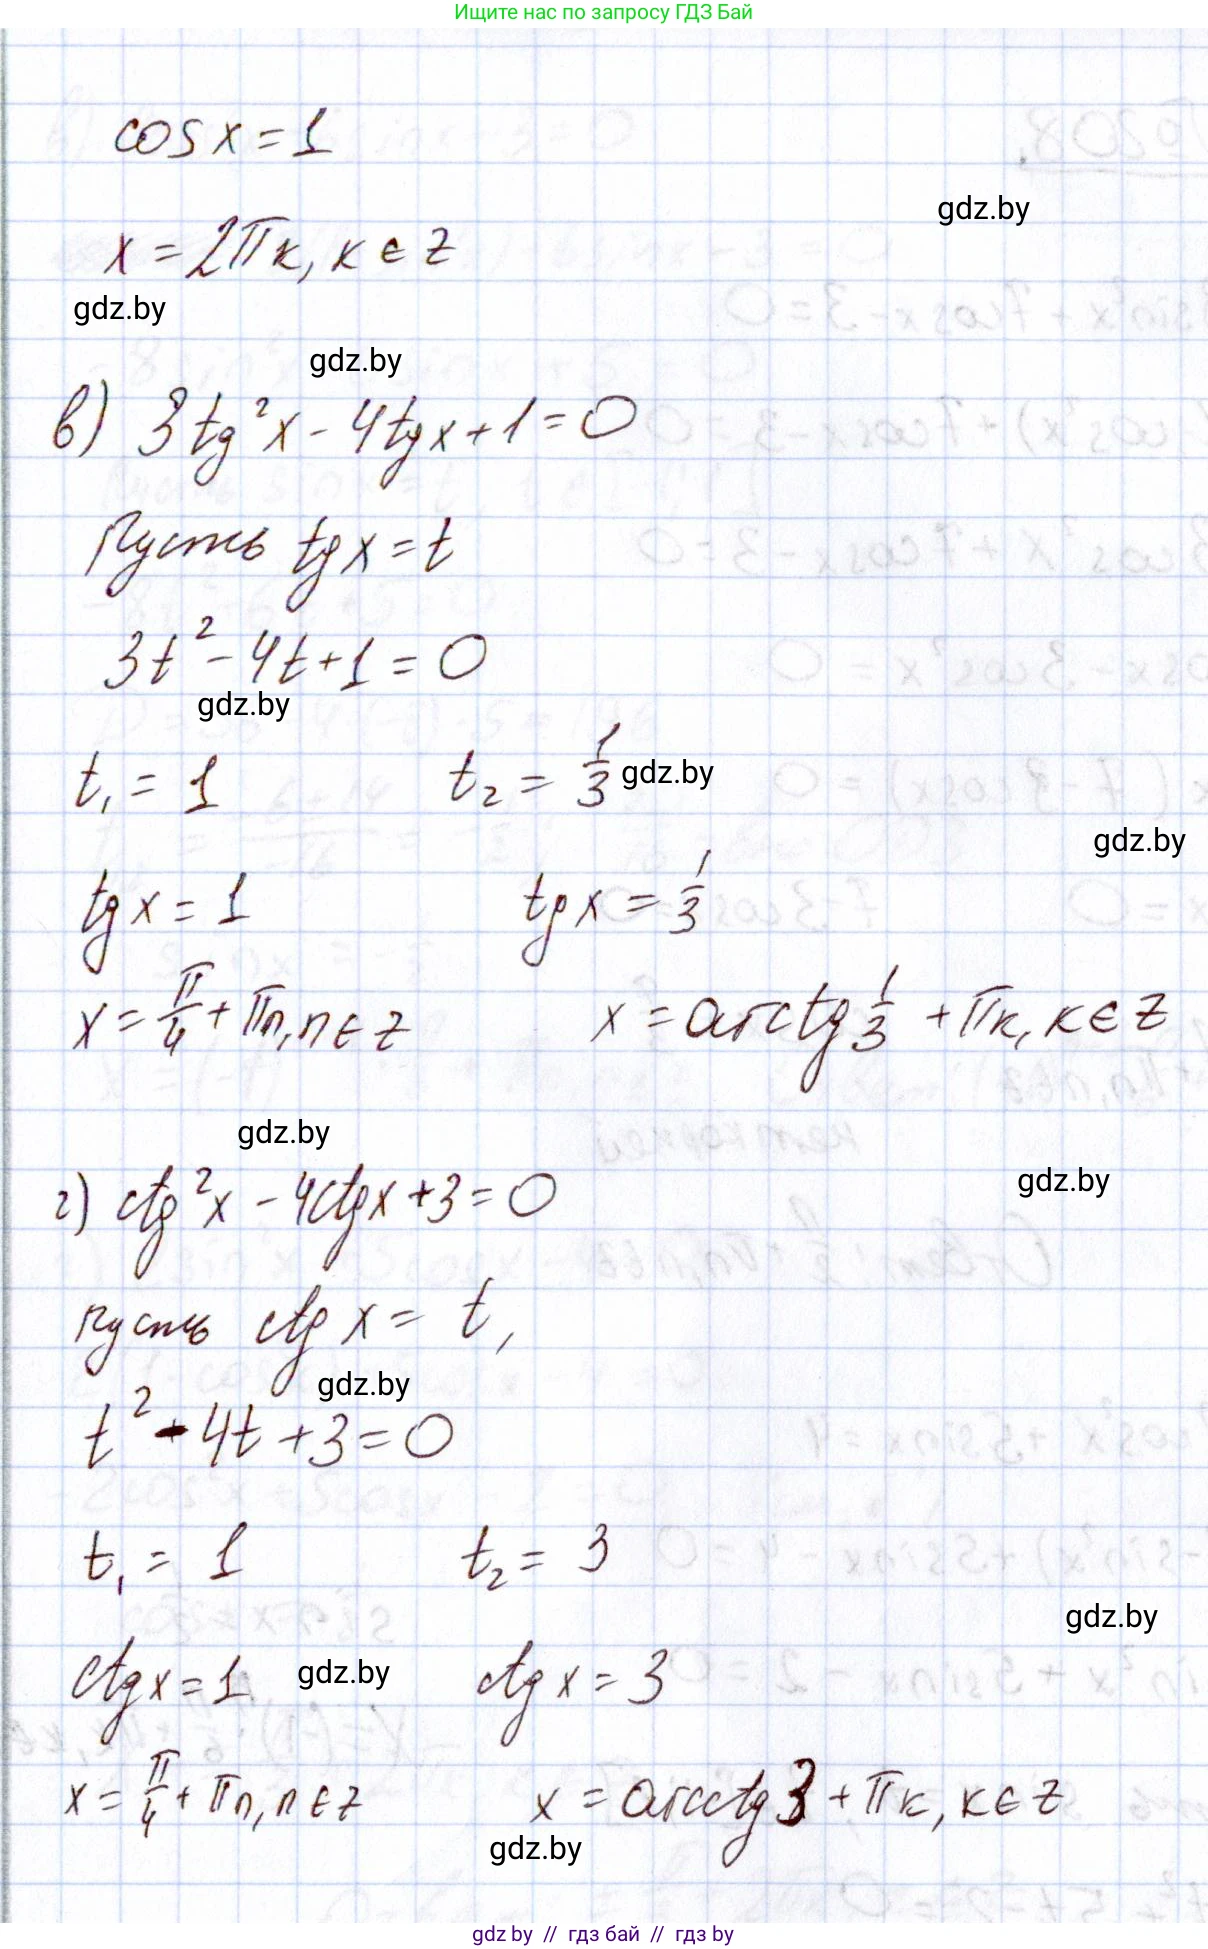 Ищите нас по запросу ГДЗ Бай
cos x = 1
gdz.by
x = 2πк, к ∈ z
gdz.by
gdz.by
в) 3tg²x - 4tgx + 1 = 0
Пусть tgx = t
3t² - 4t + 1 = 0
gdz.by
t₁ = 1 t₂ = 1/3 gdz.by
gdz.by
tgx = 1 tgx = 1/3
x = π/4 + πn, n ∈ z x = arctg 1/3 + πк, к ∈ z
gdz.by
gdz.by
г) ctg²x - 4ctgx + 3 = 0
пусть ctg x = t,
gdz.by
t² - 4t + 3 = 0
t₁ = 1 t₂ = 3
gdz.by
ctgx = 1 gdz.by ctgx = 3
x = π/4 + πn, n ∈ z x = arcctg3 + πк, к ∈ z
gdz.by
gdz.by // гдз бай // гдз by